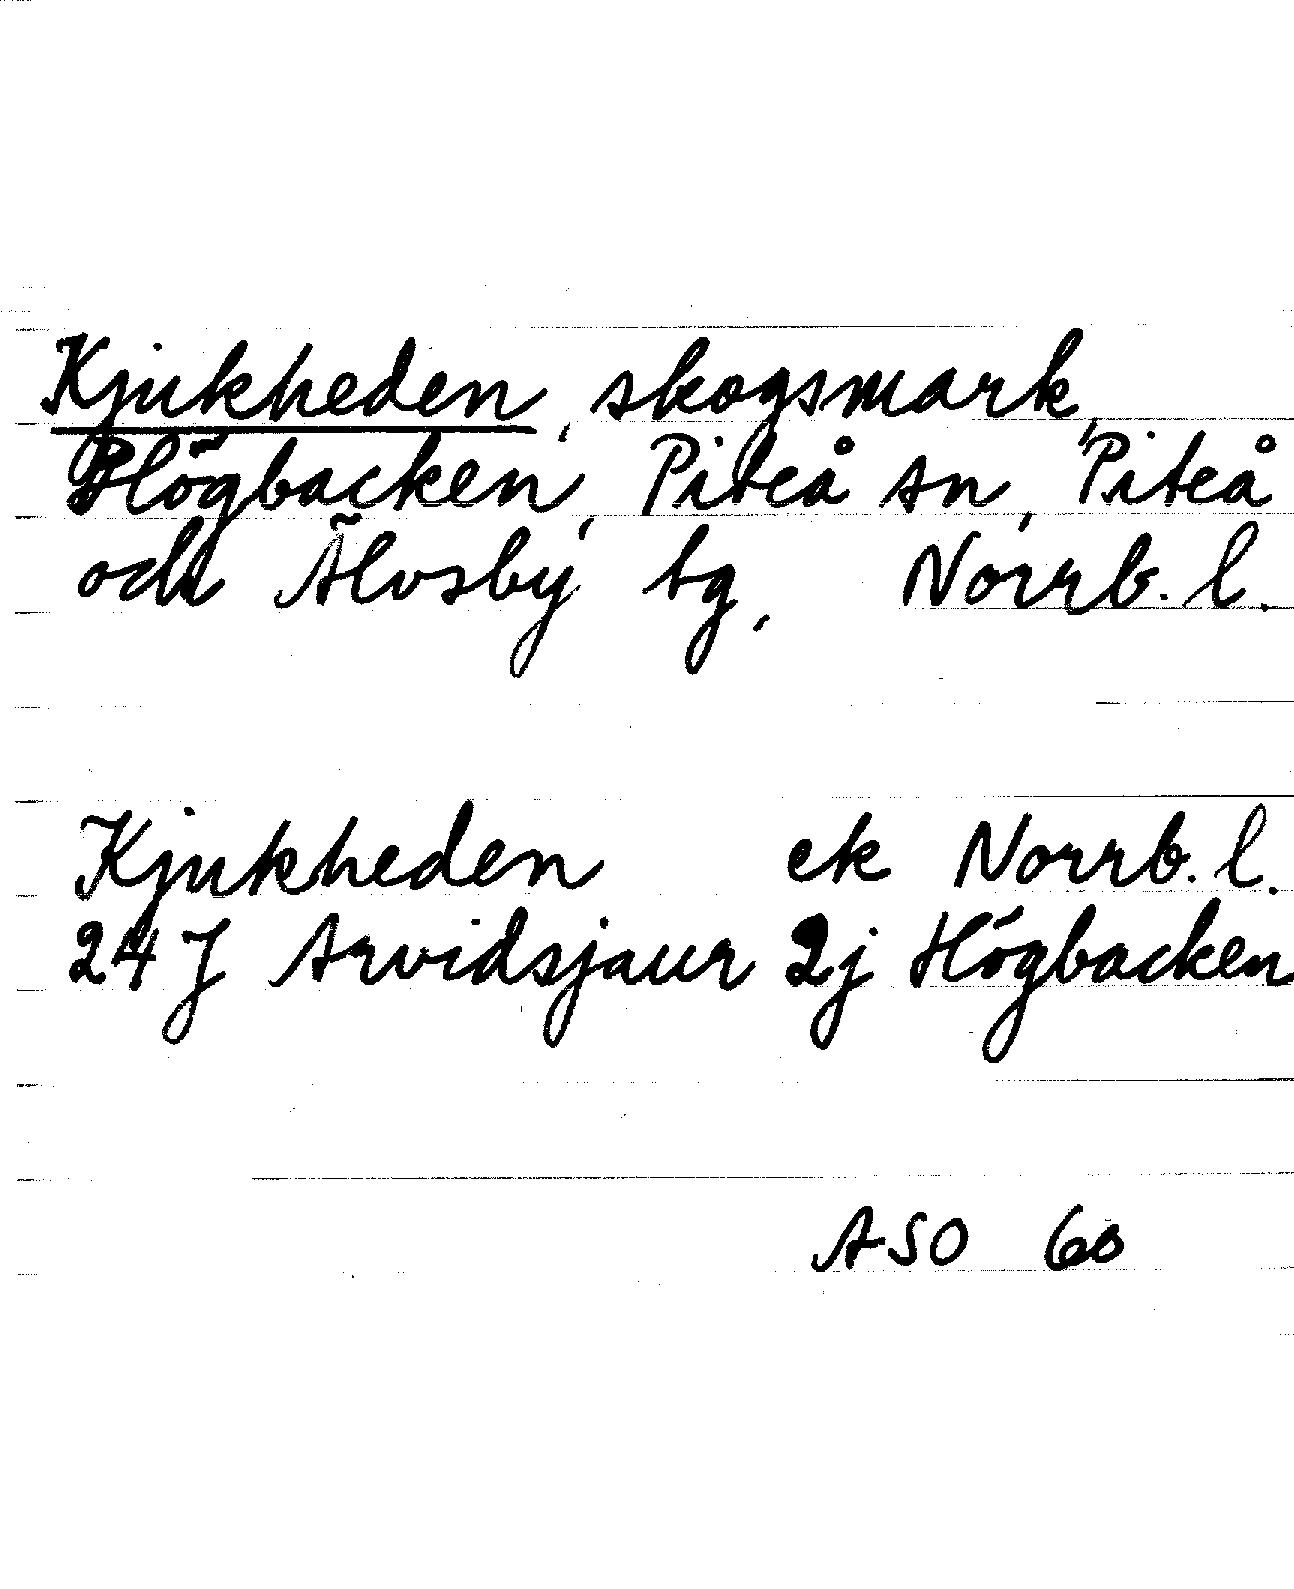 Kjukheden, skogsmark,
Högbacken, Piteå sn, Piteå
och Älvsby tg, Norrb. l.
Kjukheden ek Norrb. l.
24 J Arvidsjaur 2j Högbacken
ASO 60